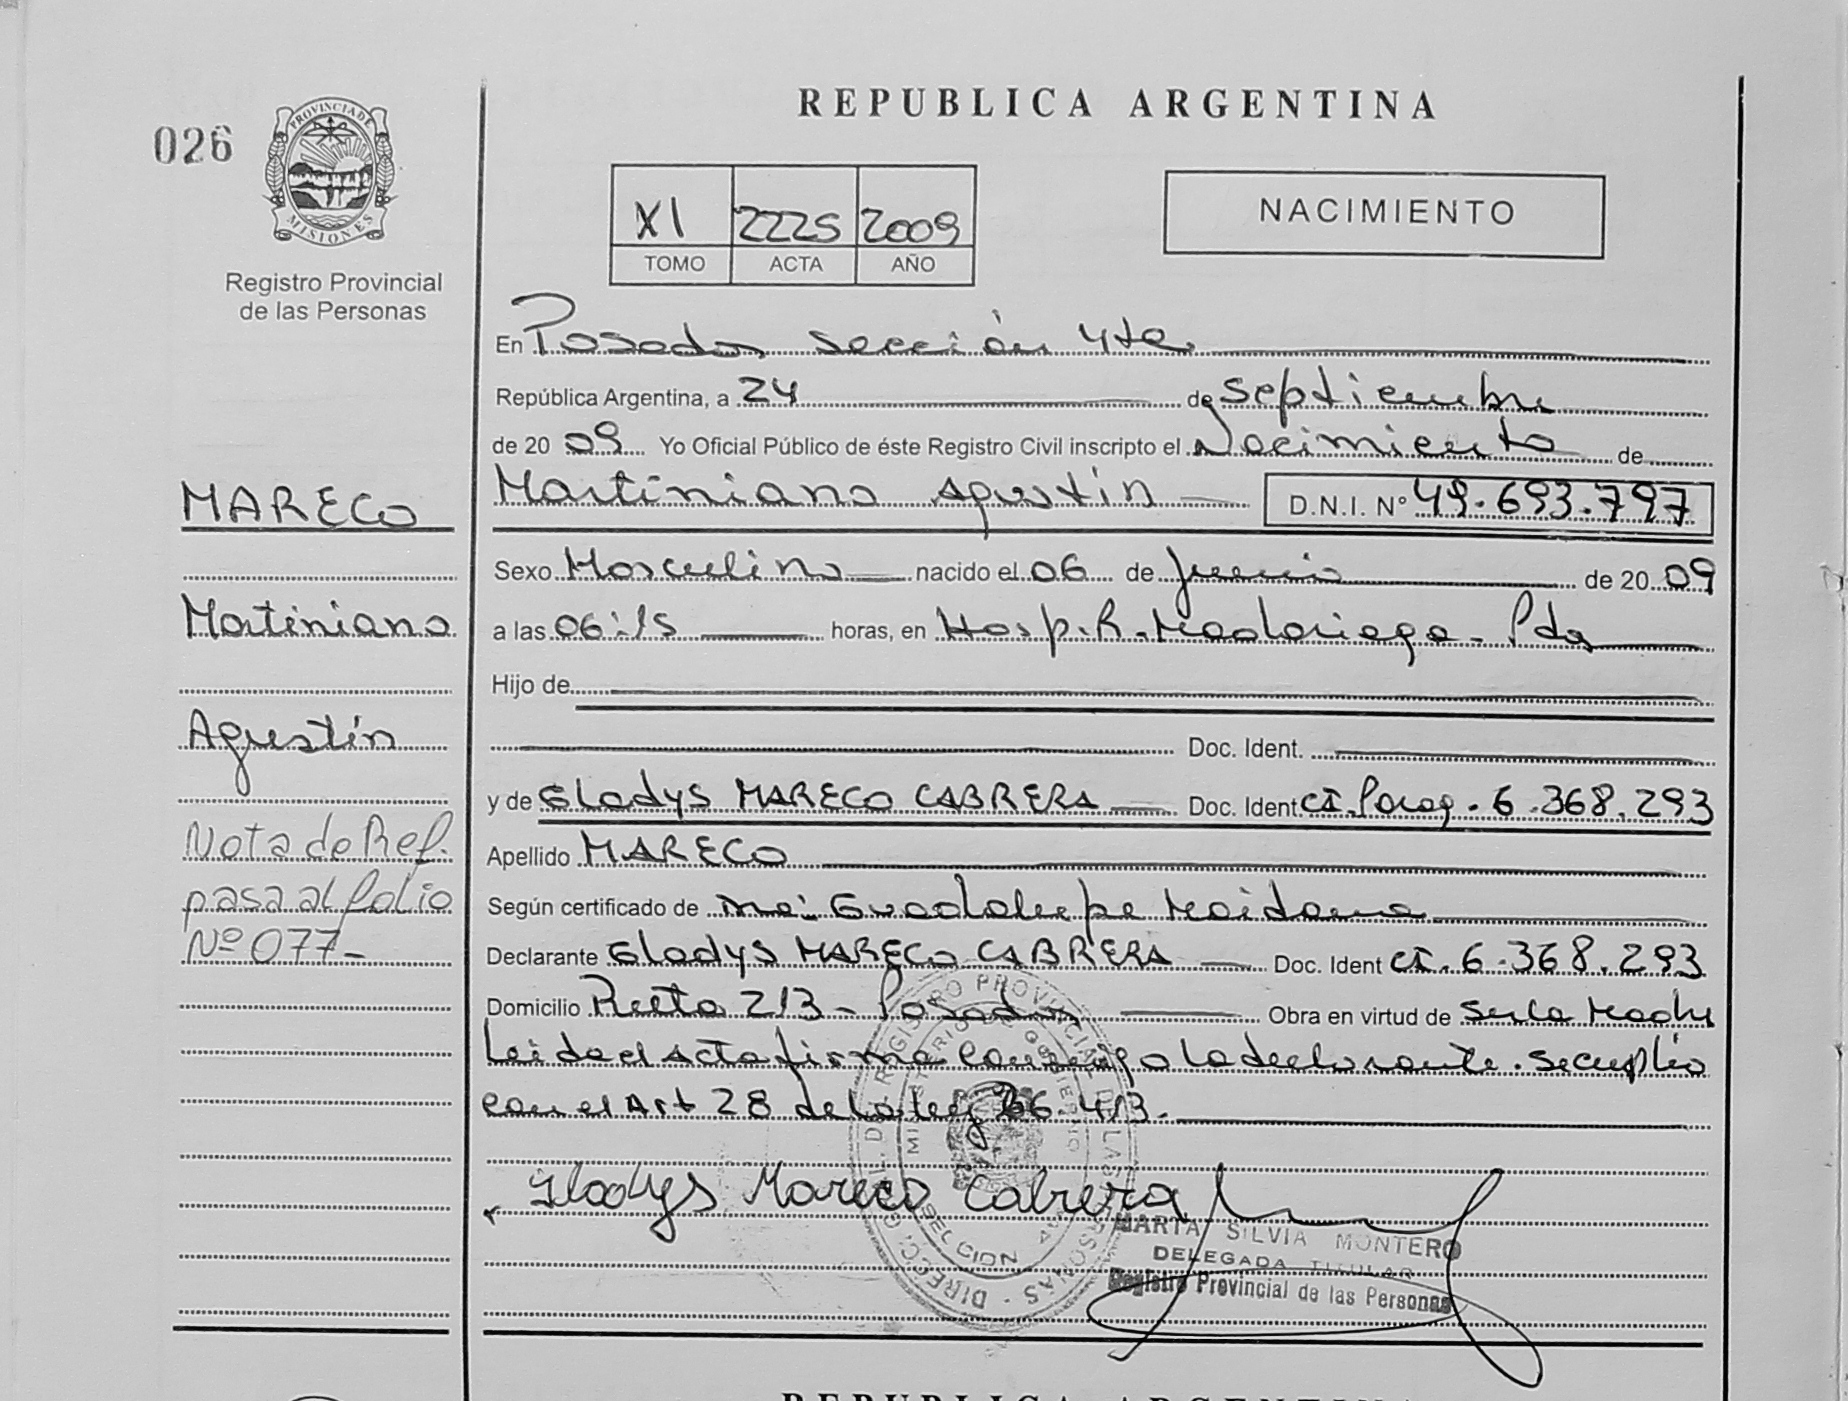 REPUBLICA ARGENTINA
026
PROVINCIA DE
MISIONES
Registro Provincial
de las Personas
XI 2225 2009
TOMO ACTA AÑO
NACIMIENTO
En Posadas sección 4ta
República Argentina, a 24 de septiembre
de 2009 Yo Oficial Público de éste Registro Civil inscripto el Nacimiento de
MARECO
Martiniano Agustín D.N.I. Nº 49.693.797
Sexo Masculino nacido el 06 de junio de 2009
Martiniano
a las 06:15 horas, en Hosp. R. Madariaga - Pdas
Hijo de
Agustín
Doc. Ident.
y de Gladys MARECO CABRERA Doc. Ident. CI. Parag. 6.368.293
Nota de Ref.
Apellido MARECO
pasa al folio
Según certificado de Ma: Guadalupe Maidana
Nº 077-
Declarante Gladys MARECO CABRERA Doc. Ident CI. 6.368.293
Domicilio Ruta 213 - Posadas Obra en virtud de ser la madre
Leida el acta firma conmigo la declarante. Se cumplió
con el Art 28 de la ley 26.413.
Gladys Mareco Cabrera
MARTA SILVIA MONTERO
DELEGADA TITULAR
Registro Provincial de las Personas
DIRECC. GRAL. DEL REGISTRO PROVINCIAL DE LAS PERSONAS
MINISTERIO DE GOBIERNO
SECCION 4A
REPUBLICA ARGENTINA